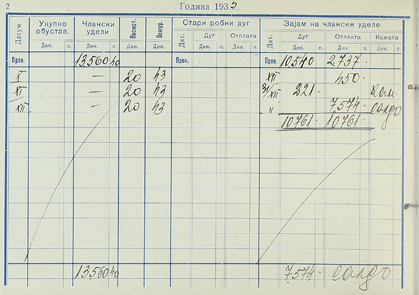 2 Година 1935
Датум Укупно обустав. Члански удели Посмрт. Осигур. Стари робни дуг Зајам на чланске уделе
Дат. Дуг Отплата Дат. Дуг Отплата Камата
Дин. п. Дин. п. Дин. Дин. Дин. п. Дин. п. Дин. п. Дин. п. Дин. п.
Прен. 13.560 40 Прен. Прен. 10.540 2737
X — 20 43 XII 450
XI — 20 43 31/XII 221 Кам
XII — 20 43 " 7574 салдо
10761 10761
13560 40 7.574 салдо